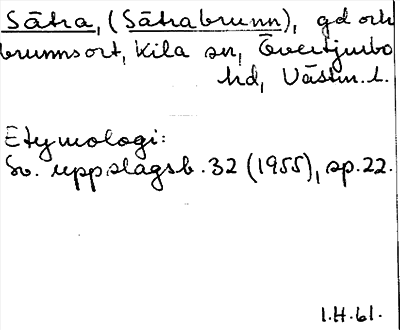 Sätra, (Sätrabrunn), gd och
brunnsort, Kila sn, Övertjurbo
hd, Västm. l.
Etymologi:
Sv. uppslagsb. 32 (1955), sp. 22.
1.H.61.